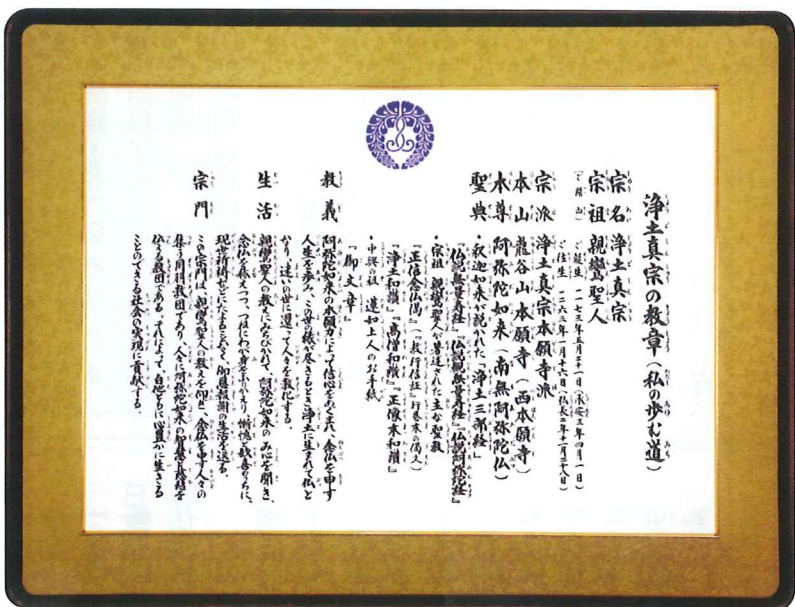 浄土真宗の教章(私の歩む道)
宗名 浄土真宗
宗祖 親鸞聖人
(ご開山) ご誕生 一一七三年五月二十一日(承安三年四月一日)
ご往生 一二六三年一月十六日(弘長二年十一月二十八日)
宗派 浄土真宗本願寺派
本山 龍谷山本願寺(西本願寺)
本尊 阿弥陀如来(南無阿弥陀仏)
聖典 ・釈迦如来が説かれた「浄土三部経」
『仏説無量寿経』『仏説観無量寿経』『仏説阿弥陀経』
・宗祖 親鸞聖人が著述された主な聖教
『正信念仏偈』(『教行信証』行巻末の偈文)
『浄土和讃』『高僧和讃』『正像末和讃』
・中興の祖 蓮如上人のお手紙
『御文章』
教義 阿弥陀如来の本願力によって信心をめぐまれ、念仏を申す
人生を歩み、この世の縁が尽きるとき浄土に生まれて仏と
なり、迷いの世に還って人々を教化する。
生活 親鸞聖人の教えにみちびかれて、阿弥陀如来のみ心を聞き、
念仏を称えつつ、つねにわが身をふりかえり、慚愧と歓喜のうちに、
現世祈祷などにたよることなく、御恩報謝の生活を送る。
宗門 この宗門は、親鸞聖人の教えを仰ぎ、念仏を申す人々の
集う同朋教団であり、人々に阿弥陀如来の智慧と慈悲を
伝える教団である。それによって、自他ともに心豊かに生きる
ことのできる社会の実現に貢献する。